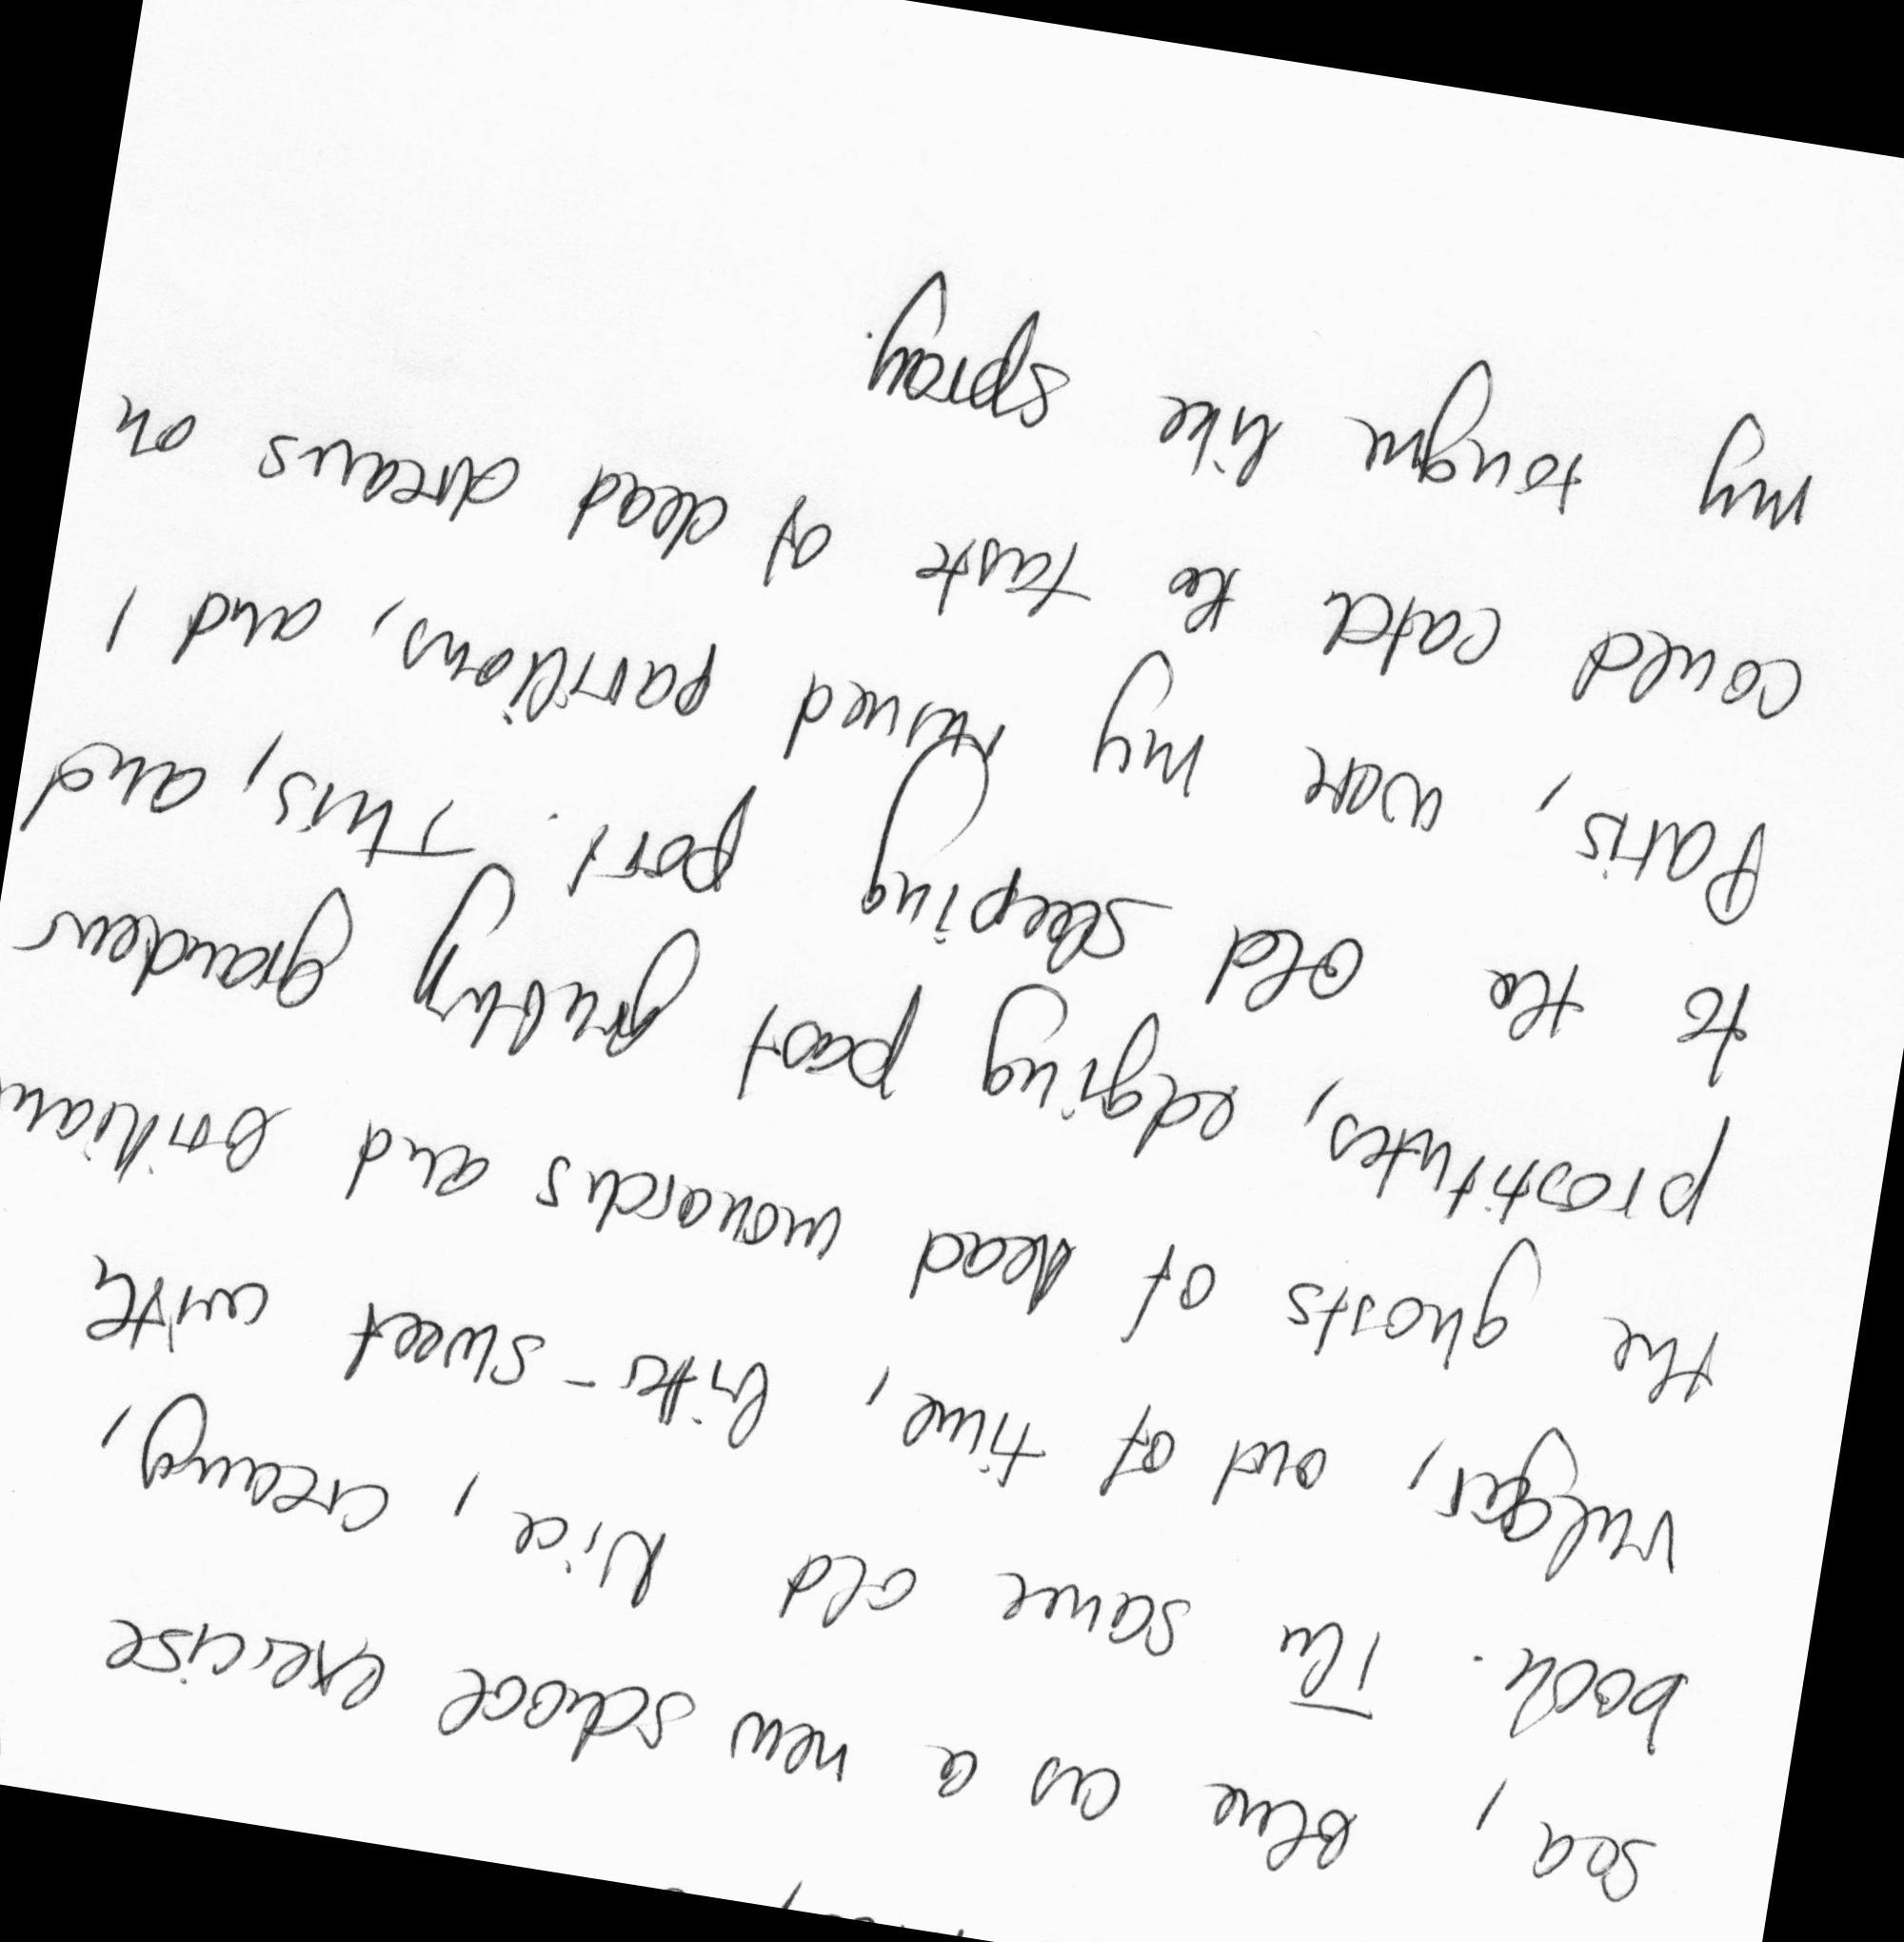 sea, blue as a new school exercise
book. The same old Nice, creamy,
vulgar, out of time, bitter-sweet with
the ghosts of dead monarchs and brilliant
prostitutes, edging past grubby grandeur
to the old sleeping port. This, and
Paris, were my ruined pavilions, and I
could catch the taste of dead dreams on
my tongue like spray.